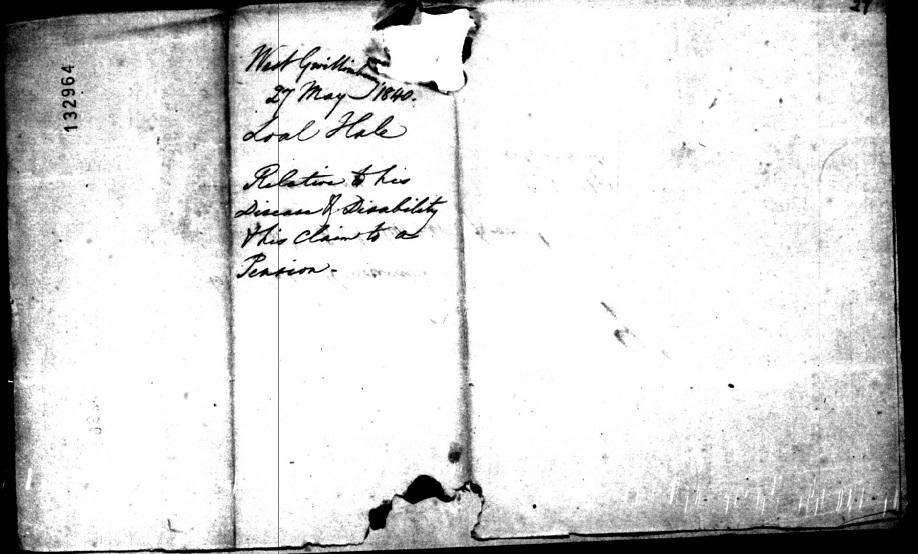 132964
West Gwillimbury
27 May 1840.
Loal Hale
Relative to his
Disease & Disability
& his Claim to a
Pension.